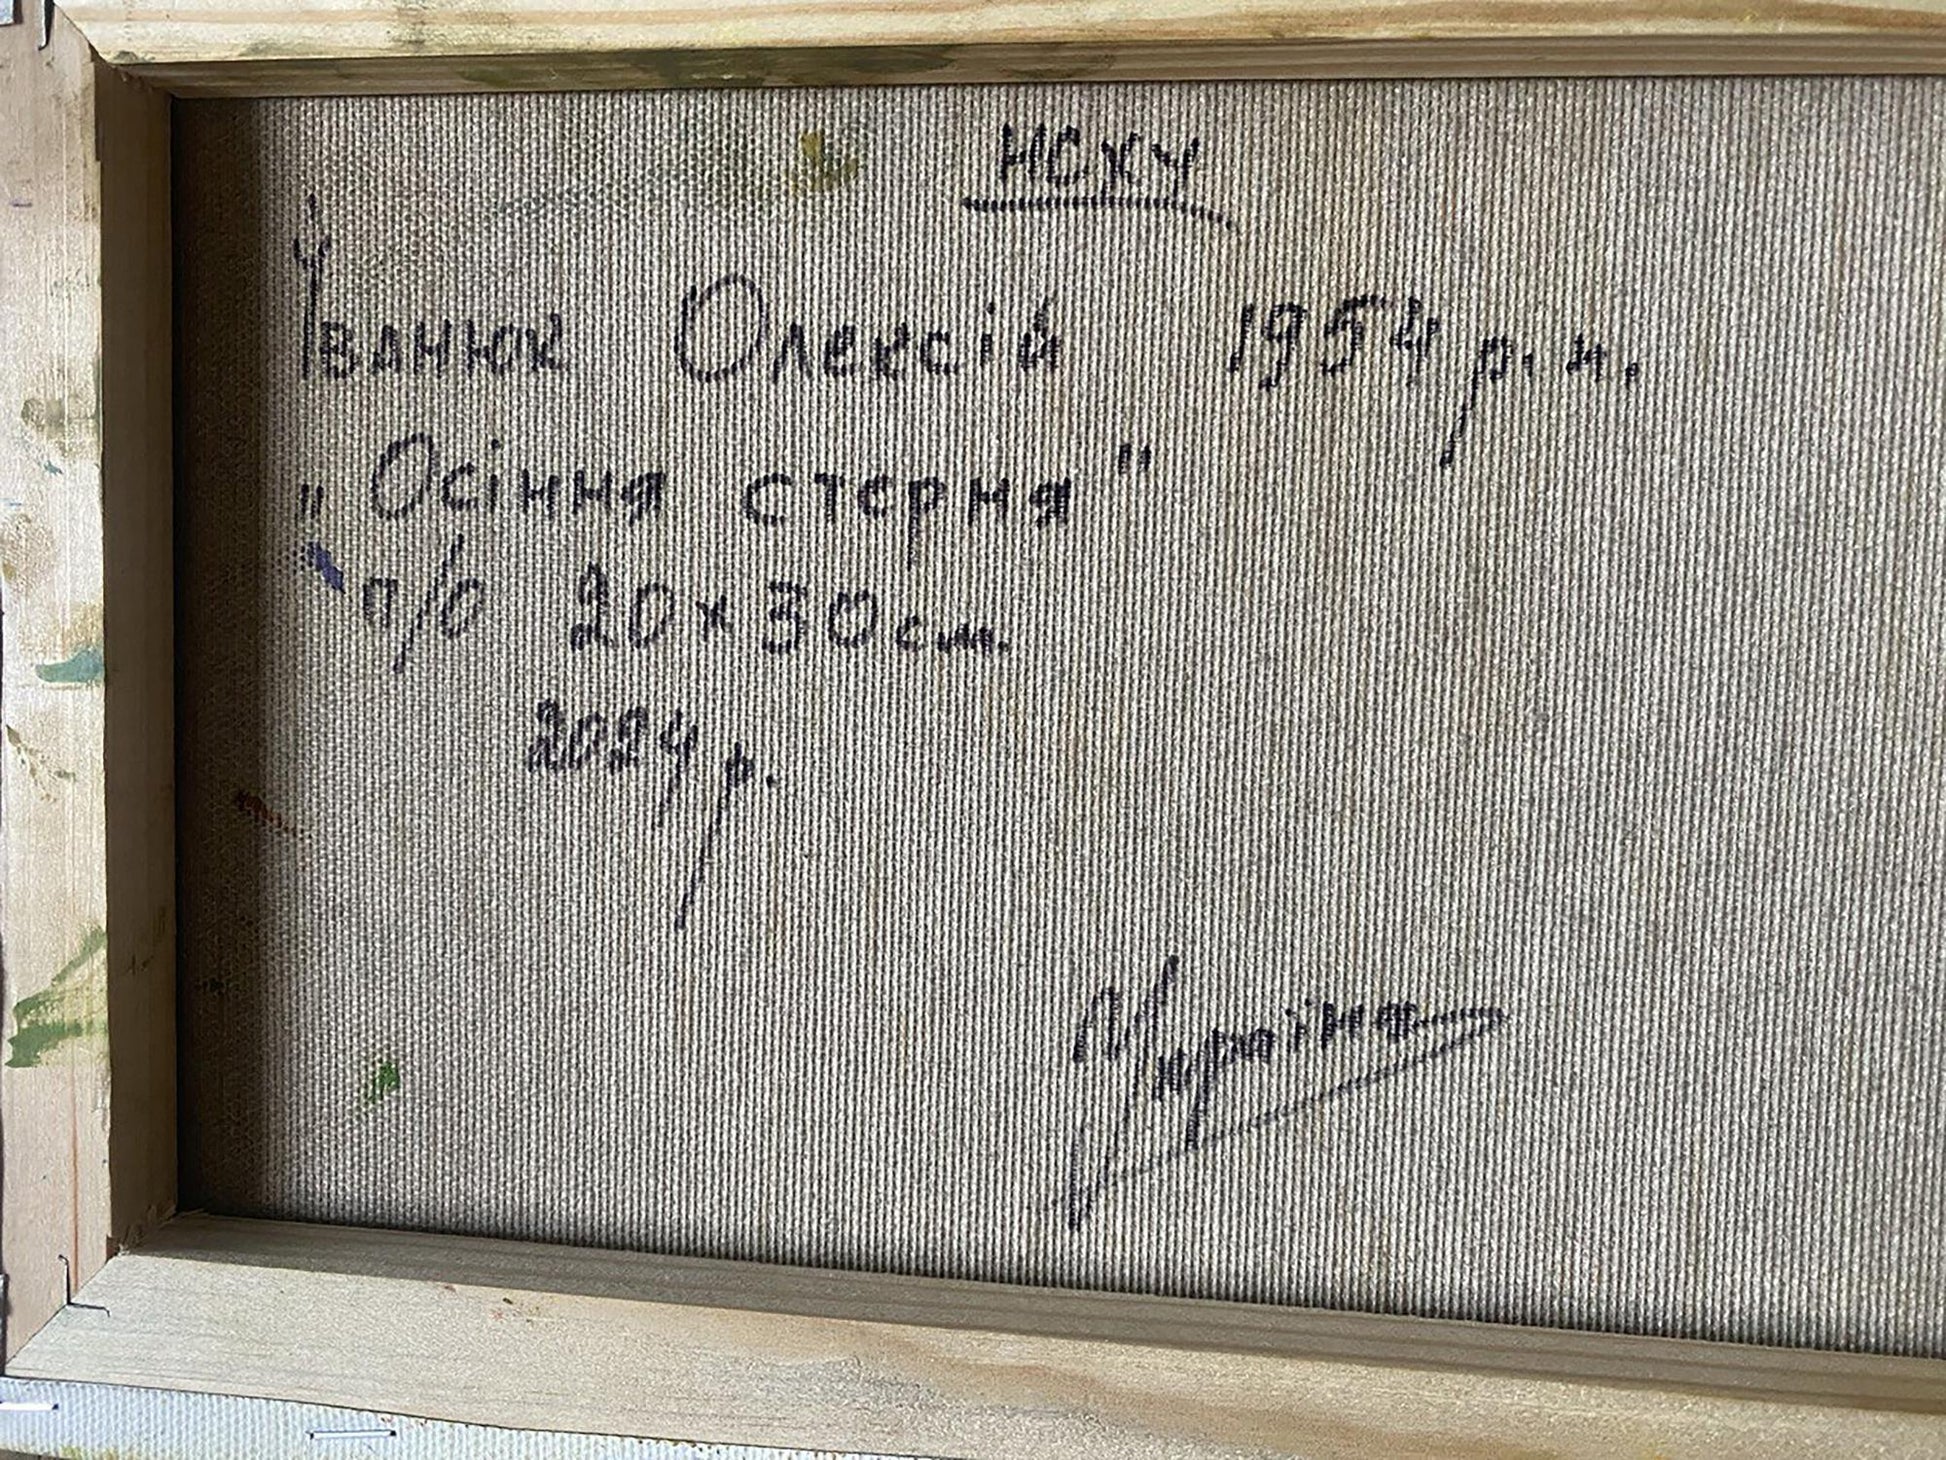 НСХУ
Іванюк Олексій 1954 р. н.
„Осіння стерня"
п/о 20х30см.
2024 р.
Україна